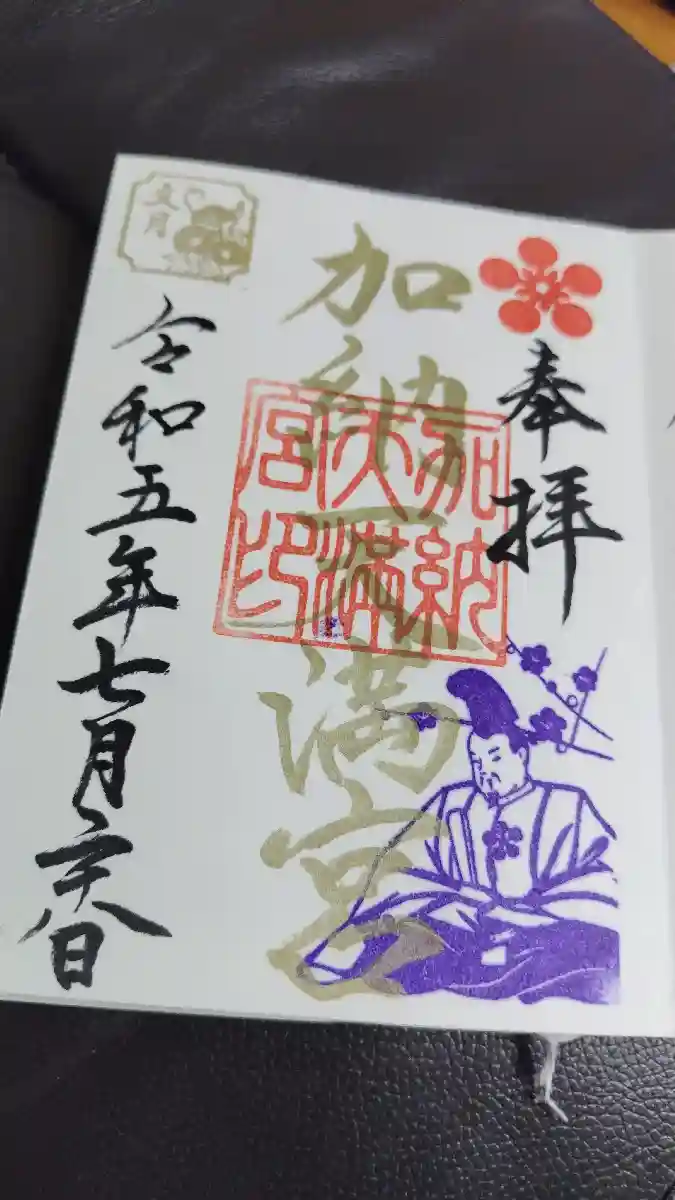 奉拝
加納天満宮
加納
天満
宮印
文月
令和五年七月二十八日